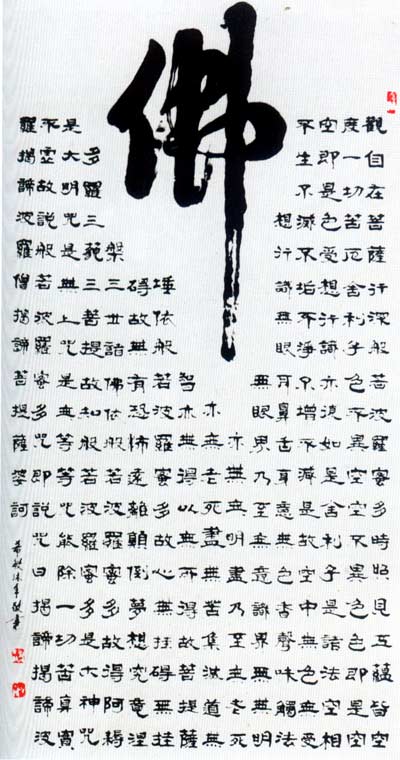 佛
觀自在菩薩行深般若波羅蜜多時照見五蘊皆空
度一切苦厄舍利子色不異空空不異色色即是空
空即是色受想行識亦復如是舍利子是諸法空相
不生不滅不垢不淨不增不減是故空中無色無受
想行識無眼耳鼻舌身意無色聲香味觸法
無眼界乃至無意識界無無明
亦無無明盡乃至無老死
亦無老死盡無苦集滅道無
智亦無得以無所得故菩提薩
埵依般若波羅蜜多故心無挂礙無挂
礙故無有恐怖遠離顛倒夢想究竟涅
槃三世諸佛依般若波羅蜜多故得阿耨
多羅三藐三菩提故知般若波羅蜜多是大神咒
是大明咒是無上咒是無等等咒能除一切苦真實
不虛故說般若波羅蜜多咒即說咒曰揭諦揭諦波
羅揭諦波羅僧揭諦菩提薩婆訶